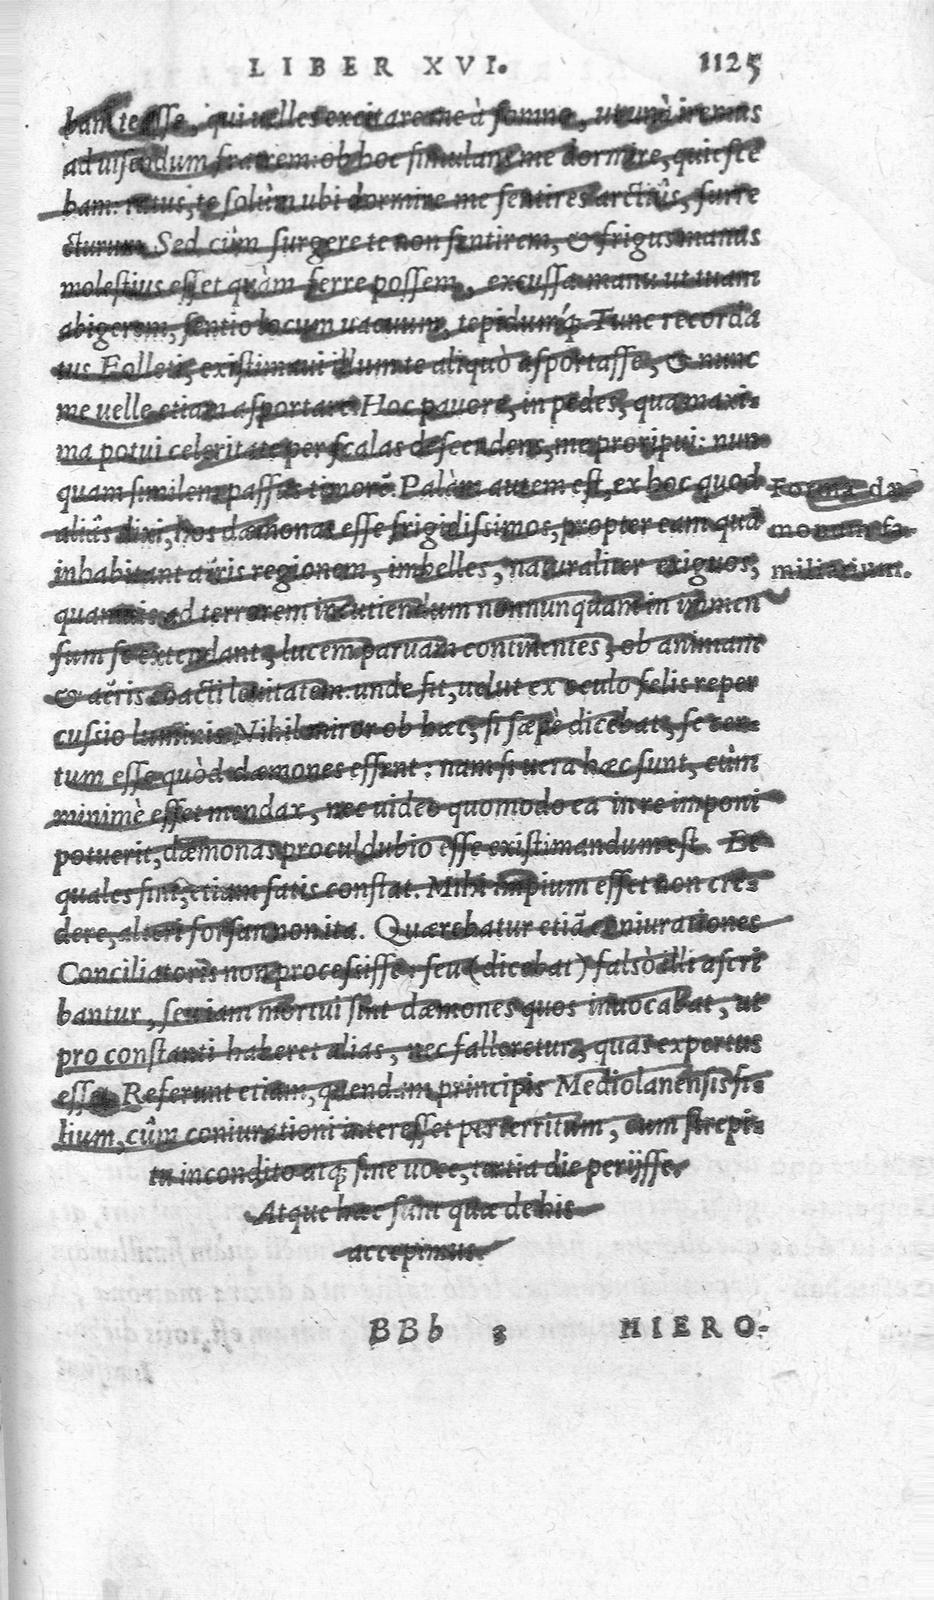 LIBER XVI. 1125
bam te esse, qui uelles excitare me à somno, ut unà iremus
ad uisendum fratrem: ob hoc simulans me dormire, quiesce
bam: ratus, te solùm ubi dormire me sentires arctiûs, surre
cturum. Sed cùm surgere te non sentirem, & frigus manus
molestius esset quàm ferre possem, excussa manu ut tuam
abigerem, sentio locum uacuum, tepidumq́;. Tunc recorda
tus Folleti, existimaui illum te aliquò asportasse, & nunc
me uelle etiam asportare. Hoc pauore, in pedes, qua maxi-
ma potui celeritate per scalas descendens, me proripui: nun
quam similem passus timorē. Palàm autem est, ex hoc quod
aliâs dixi, hos dæmonas esse frigidissimos, propter eam quā
inhabitant aëris regionem, imbelles, naturaliter exiguos,
quamuis ad terrorem incutiendum nonnunquam in immen
sum se extendant, lucem paruam continentes, ob animam
& aëris coacti leuitatem: unde fit, uelut ex oculo felis reper
cussio luminis. Nihil miror ob hæc, si sæpè dicebat, se cer-
tum esse quòd dæmones essent: nam si uera hæc sunt, cùm
minimè esset mendax, nec uideo quomodo ea in re imponi
potuerit, dæmonas procul dubio esse existimandum est. Et
quales sint, etiam satis constat. Mihi impium esset non cre-
dere, alteri forsan non ita. Quærebatur etiā coniurationes
Conciliatoris non processisse: seu (dicebat) falsò illi ascri
bantur, seu iam mortui sint dæmones quos inuocabat, ut
pro constanti haberet alias, nec falleretur, quas expertus
esset. Referunt etiam, quendam principis Mediolanensis fi-
lium, cûm coniurationi interesset perterritum, cum strepi-
tu incondito atq; sine uoce, tertia die perijsse.
Atque hæc sunt quæ de his
accepimus.
Forma dæ-
monum fa-
miliarium.
BBb 3 HIERO-